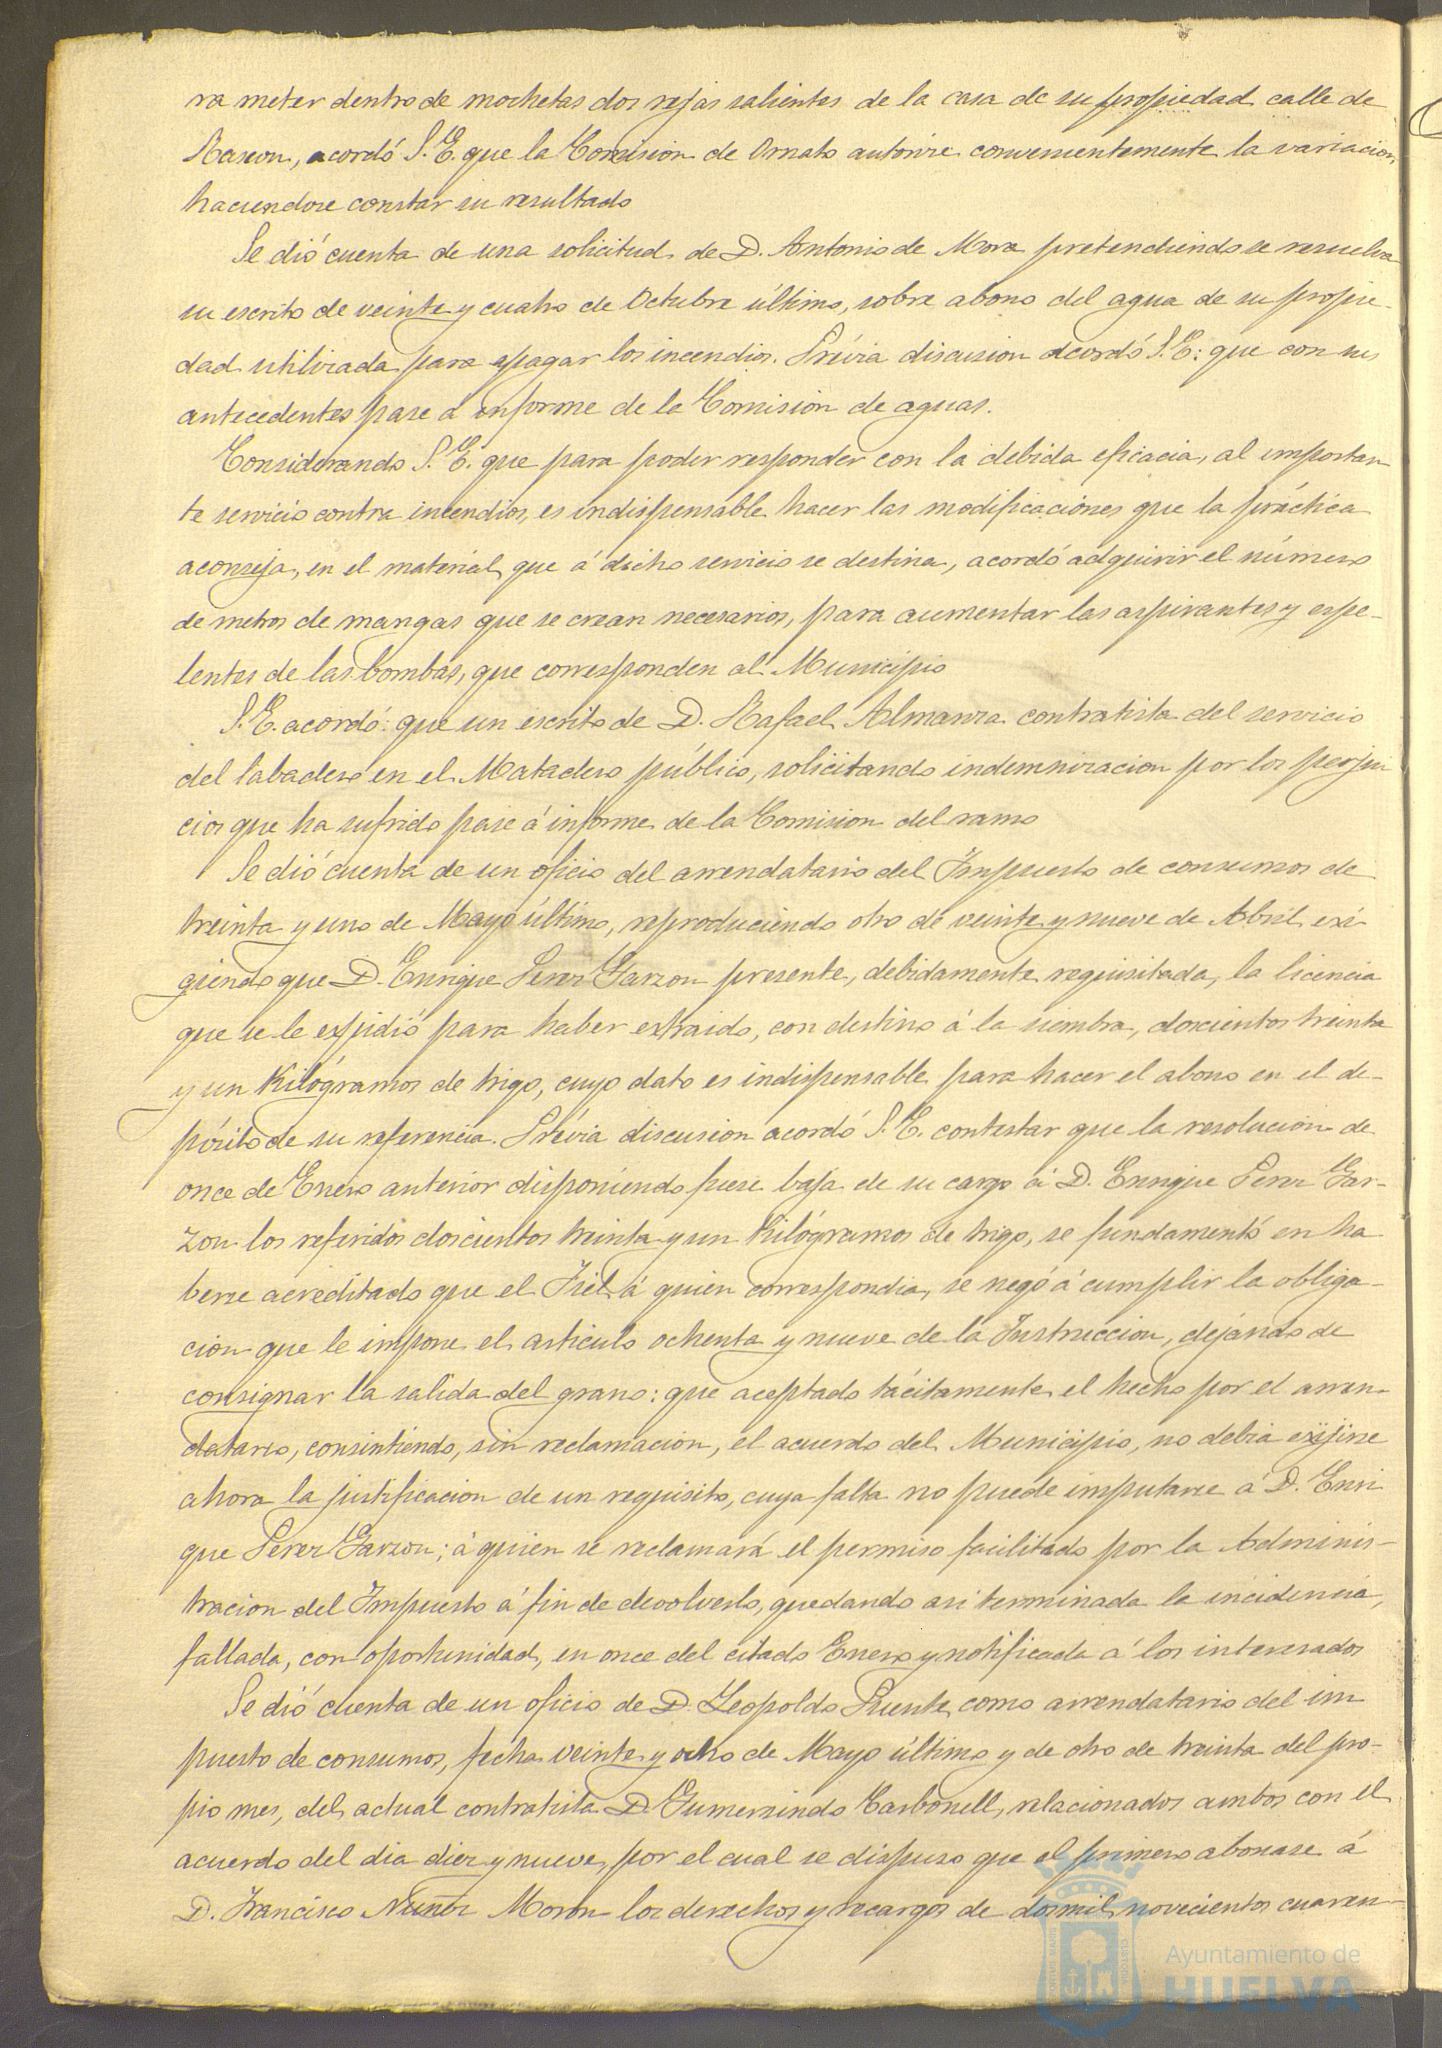 ra meter dentro de mochetas dos rejas salientes de la casa de su propiedad calle de
Rascon, acordó S. E. que la Comision de Ornato autorice convenientemente la variacion,
haciendose constar su resultado
Se dió cuenta de una solicitud de D. Antonio de Mora pretendiendo se resuelva
su escrito de veinte y cuatro de Octubre último, sobre abono del agua de su propie-
dad utilizada para apagar los incendios. Prévia discusion acordó S. E: que con sus
antecedentes pase á informe de la Comision de aguas.
Considerando S. E. que para poder responder con la debida eficacia, al importan
te servicio contra incendios, es indispensable hacer las modificaciones que la práctica
aconseja, en el material que á dicho servicio se destina, acordó adquirir el número
de metros de mangas que se crean necesarios, para aumentar las aspirantes y espe-
lentes de las bombas, que corresponden al Municipio
S. E. acordó: que un escrito de D. Rafael Almanza contratista del servicio
del labadero en el Matadero público, solicitando indemnizacion por los perjui
cios que ha sufrido pase á informe de la Comision del ramo
Se dió cuenta de un oficio del arrendatario del Impuesto de consumos de
treinta y uno de Mayo último, reproduciendo otro de veinte y nueve de Abril exi-
giendo que D. Enrique Perez Garzon presente, debidamente requisitada, la licencia
que se le expidió para haber extraido, con destino á la siembra, doscientos treinta
y un Kilógramos de trigo, cuyo dato es indispensable para hacer el abono en el de-
pósito de su referencia. Prévia discusion acordó S. E. contestar que la resolucion de
once de Enero anterior disponiendo fuese baja de su cargo á D. Enrique Perez Gar-
zon los referidos doscientos treinta y un Kilógramos de trigo, se fundamentó en ha
berse acreditado que el Fiel á quien correspondia, se negó á cumplir la obliga-
cion que le impone el articulo ochenta y nueve de la Instruccion, dejando de
consignar la salida del grano: que aceptado tácitamente el hecho por el arren-
datario, consintiendo, sin reclamacion, el acuerdo del Municipio, no debia exijirse
ahora la justificacion de un requisito, cuya falta no puede imputarse á D. Enri
que Perez Garzon; á quien se reclamará el permiso facilitado por la Adminis-
tracion del Impuesto á fin de devolverlo, quedando asi terminada la incidencia,
fallada, con oportunidad, en once del citado Enero y notificada á los interesados
Se dió cuenta de un oficio de D. Leopoldo Puente, como arrendatario del im
puesto de consumos, fecha veinte y ocho de Mayo último y de otro de treinta del pro-
pio mes, del actual contratista D. Gumersindo Carbonell, relacionados ambos con el
acuerdo del dia diez y nueve, por el cual se dispuso que el primero abonase á
D. Francisco Nuñez Moron los derechos y recargos de dos mil novecientos cuaren-
Ayuntamiento de
HUELVA